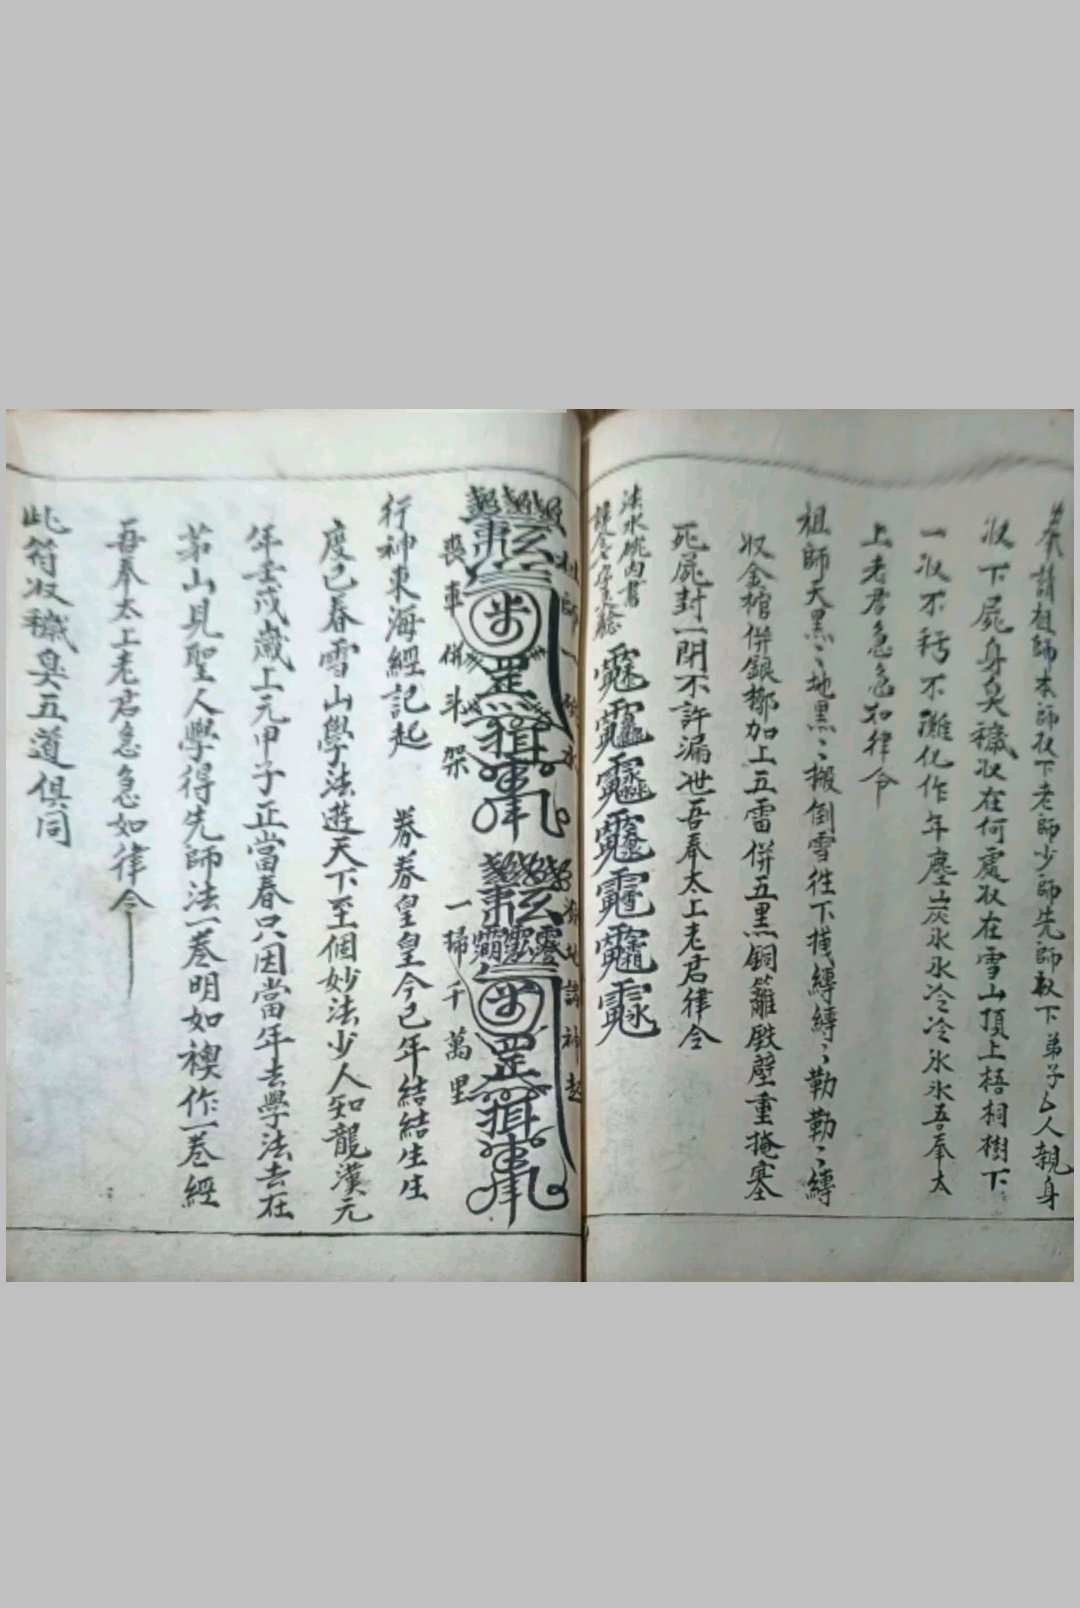 奉請祖師本師收下老師少師先師收下弟子人親身
收下屍身臭穢收在何處收在雪山頂上梧桐樹下
一收不朽不濰化作年塵炭氷氷冷冷氷氷吾奉太
上老君急急如律令
祖師天黑〻地黑〻搬倒雪徃下撲縛縛〻勒勒〻縛
收金棺併銀槨加上五雷併五黑銅籬鉄壁重掩塞
死屍封一閉不許漏泄吾奉太上老君律令
法水碗內書
祖師一碗水
諸神起
喪車併斗架
一掃千萬里
行神東海經記起 券券皇皇今已年結結生生
度已春雪山學法遊天下至個妙法少人知龍漢元
年壬戌歲上元甲子正當春只因當年去學法去在
茅山見聖人學得先師法一巻明如襖作一巻經
吾奉太上老君急急如律令
此符收穢臭五道俱同